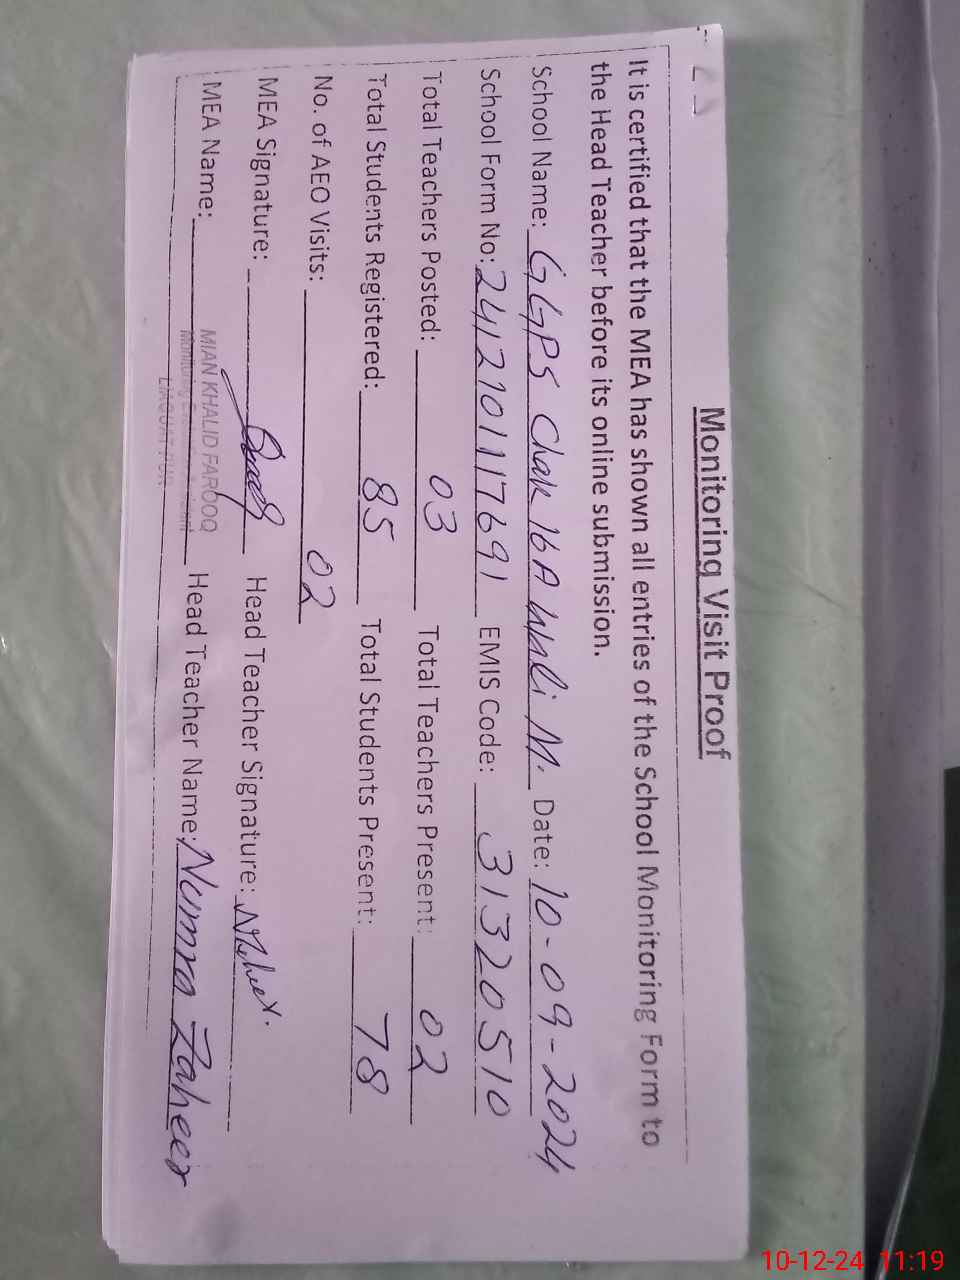 Monitoring Visit Proof
It is certified that the MEA has shown all entries of the School Monitoring Form to
the Head Teacher before its online submission.
School Name: GGPS Chak 16A Wali M. Date: 10-09-2024
School Form No: 2412101117691 EMIS Code: 31320510
Total Teachers Posted: 03 Total Teachers Present: 02
Total Students Registered: 85 Total Students Present: 78
No. of AEO Visits: 02
MEA Signature: Head Teacher Signature:
MEA Name: MIAN KHALID FAROOQ Head Teacher Name: Numra Zaheer
Monitoring
LIAQUAT PUR
10-12-24 11:19